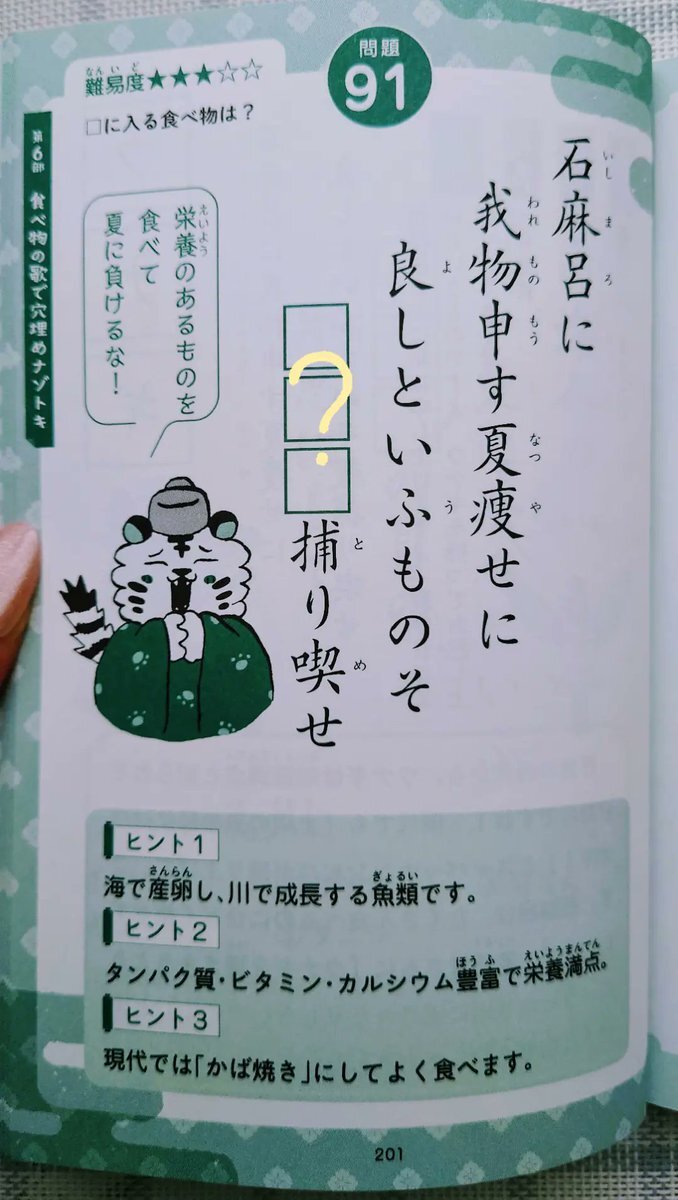 問題
91
難易度★★★☆☆
□に入る食べ物は？
第6部 食べ物の歌で穴埋めナゾトキ
石麻呂に
我物申す夏痩せに
良しといふものそ
□□□捕り喫せ
?
栄養のあるものを
食べて
夏に負けるな！
ヒント1
海で産卵し、川で成長する魚類です。
ヒント2
タンパク質・ビタミン・カルシウム豊富で栄養満点。
ヒント3
現代では「かば焼き」にしてよく食べます。
201